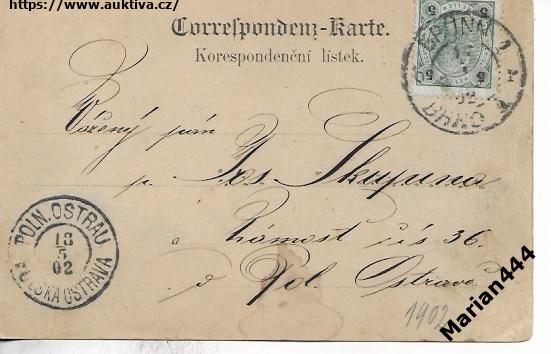 https://www.auktiva.cz/
Correspondenz-Karte.
Korespondenční lístek.
5 5
BRÜNN 1
BRNO
Vážený pán
p. Jos. Skupina
POLN. OSTRAU
18
5
02
POLSKÁ OSTRAVA
a
Námost čís 36.
Pol. Ostravě
1902
Marian444